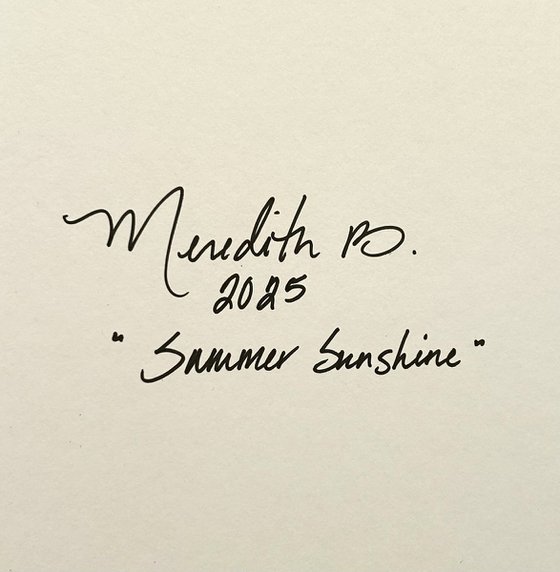 Meredith B.
2025
"Summer Sunshine"